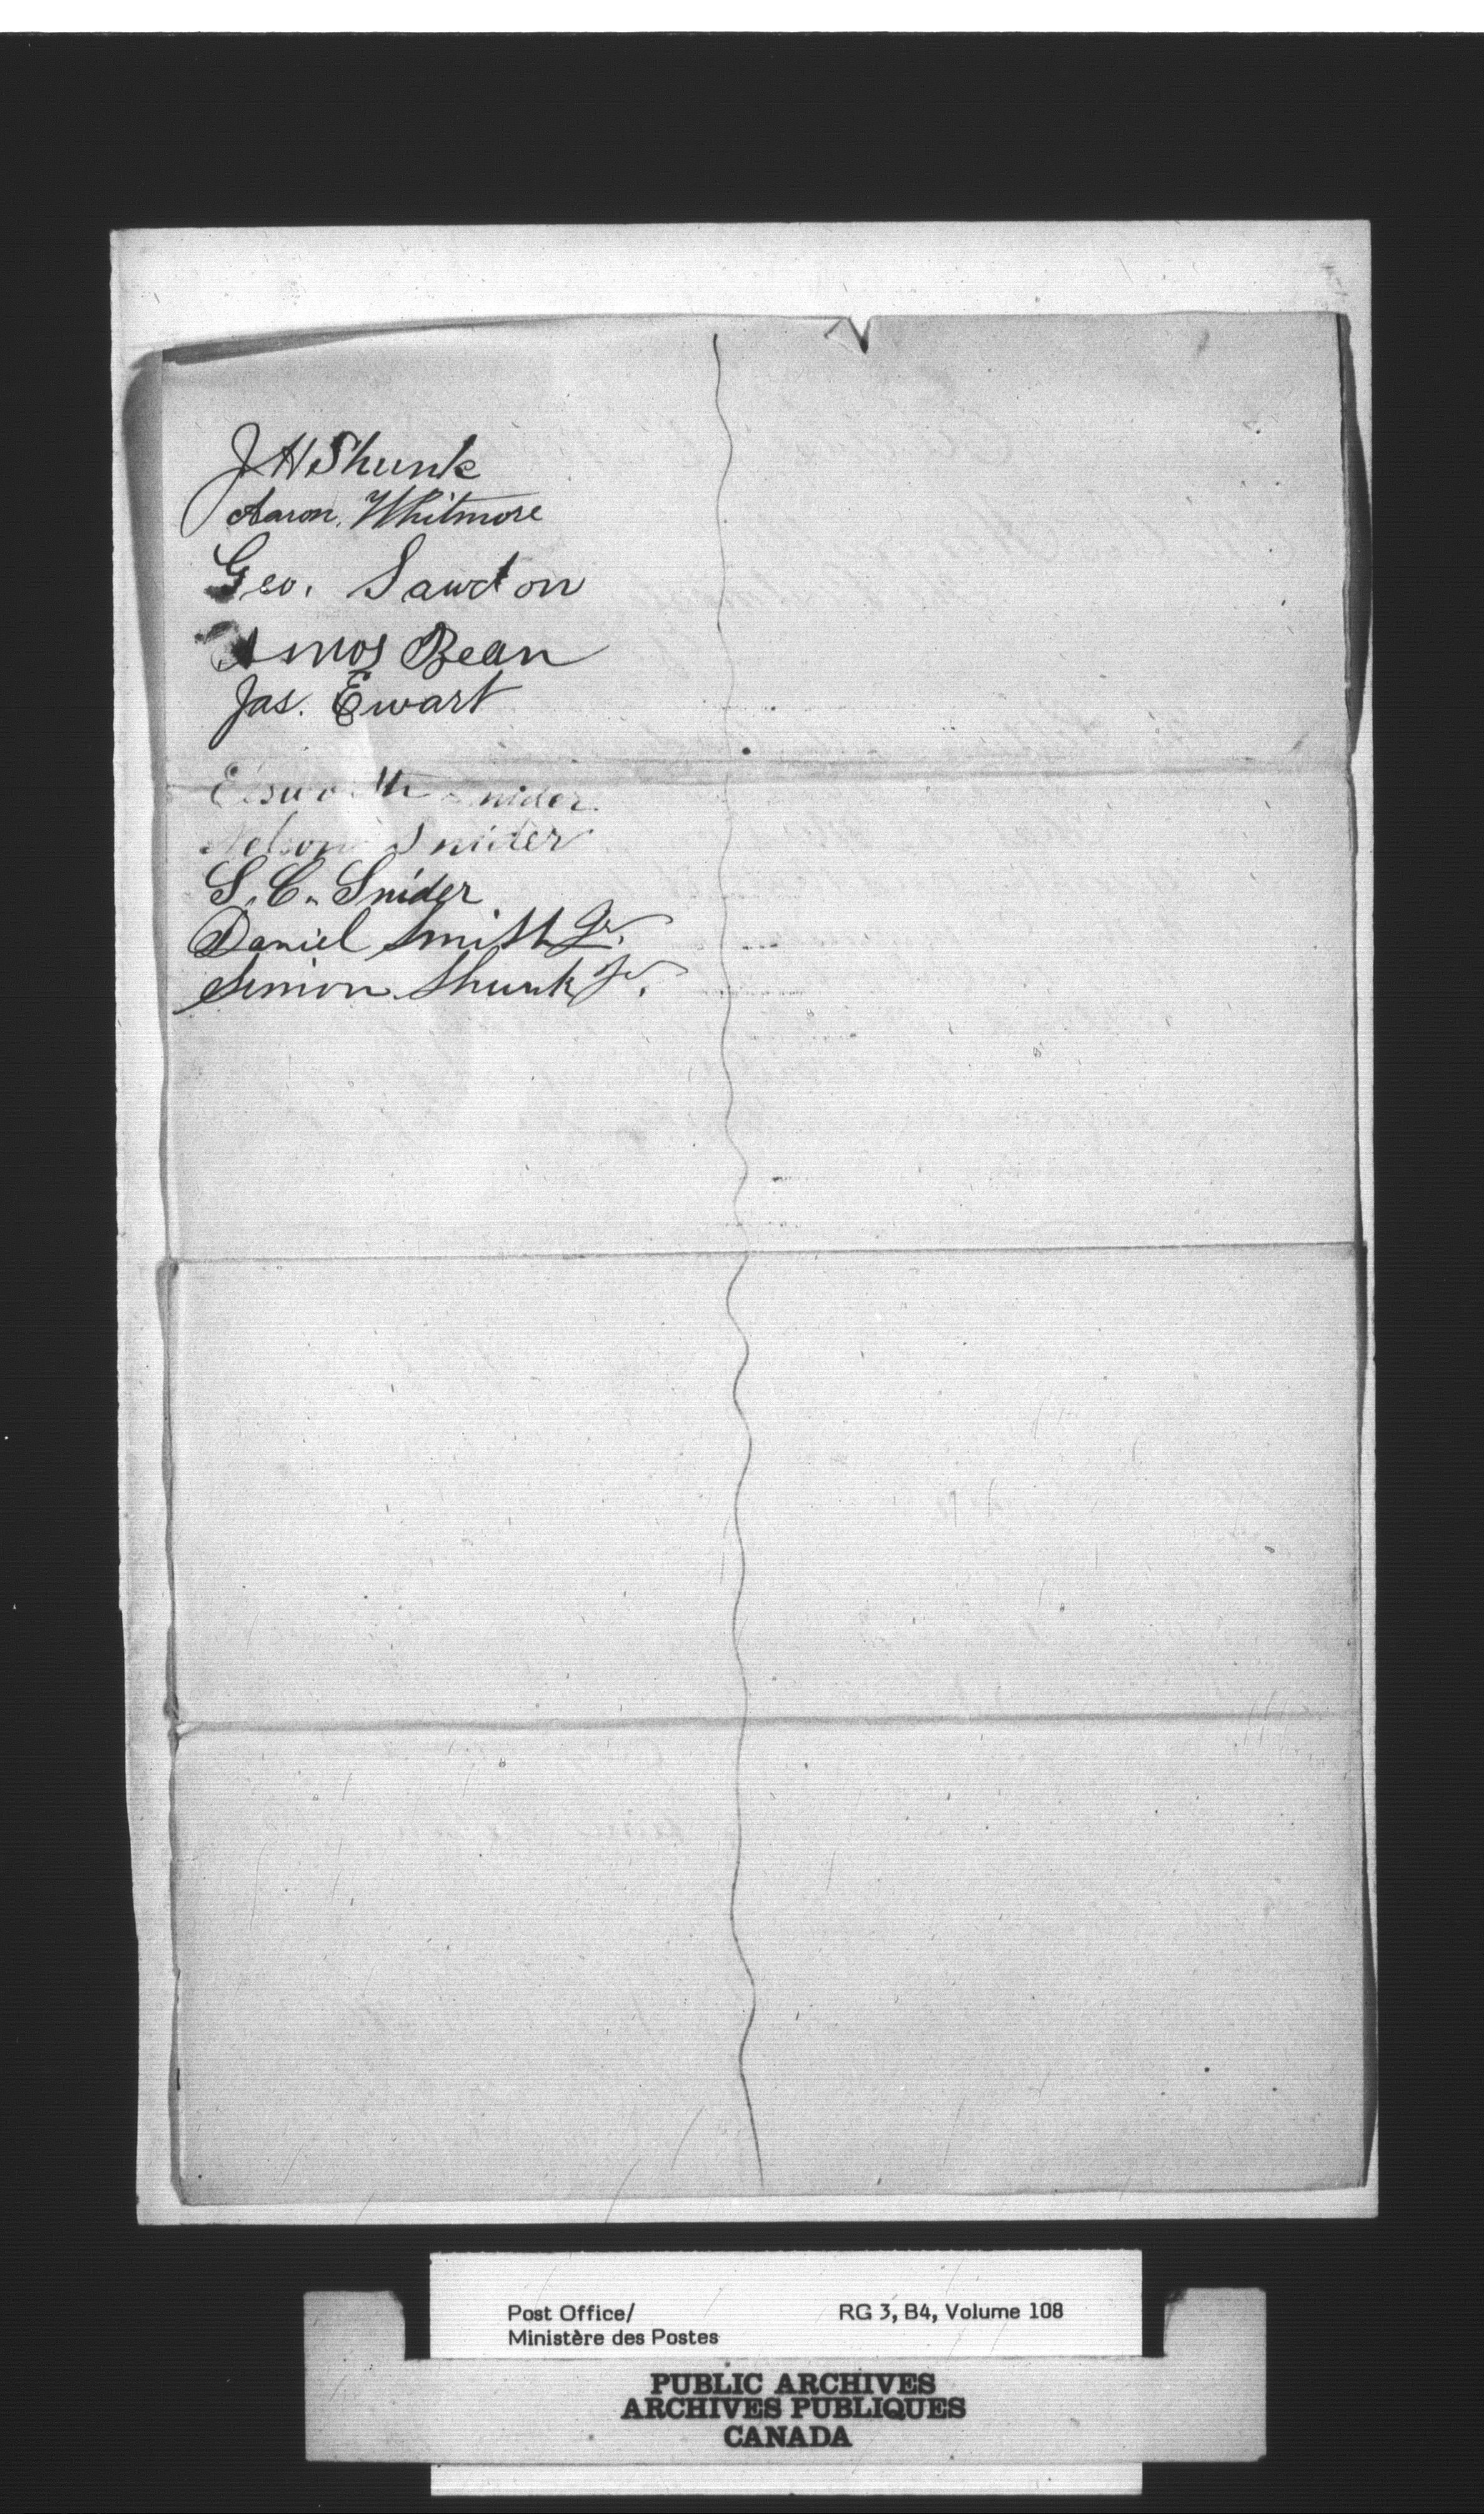 J H Shunk
Aaron Whitmore
Geo. Sawdon
Amos Bean
Jas. Ewart
Elsworth Snider
Nelson Snider
S. C. Snider
Daniel Smith Jr.
Simon Shunk Jr.
Post Office/
Ministère des Postes
RG 3, B4, Volume 108
PUBLIC ARCHIVES
ARCHIVES PUBLIQUES
CANADA